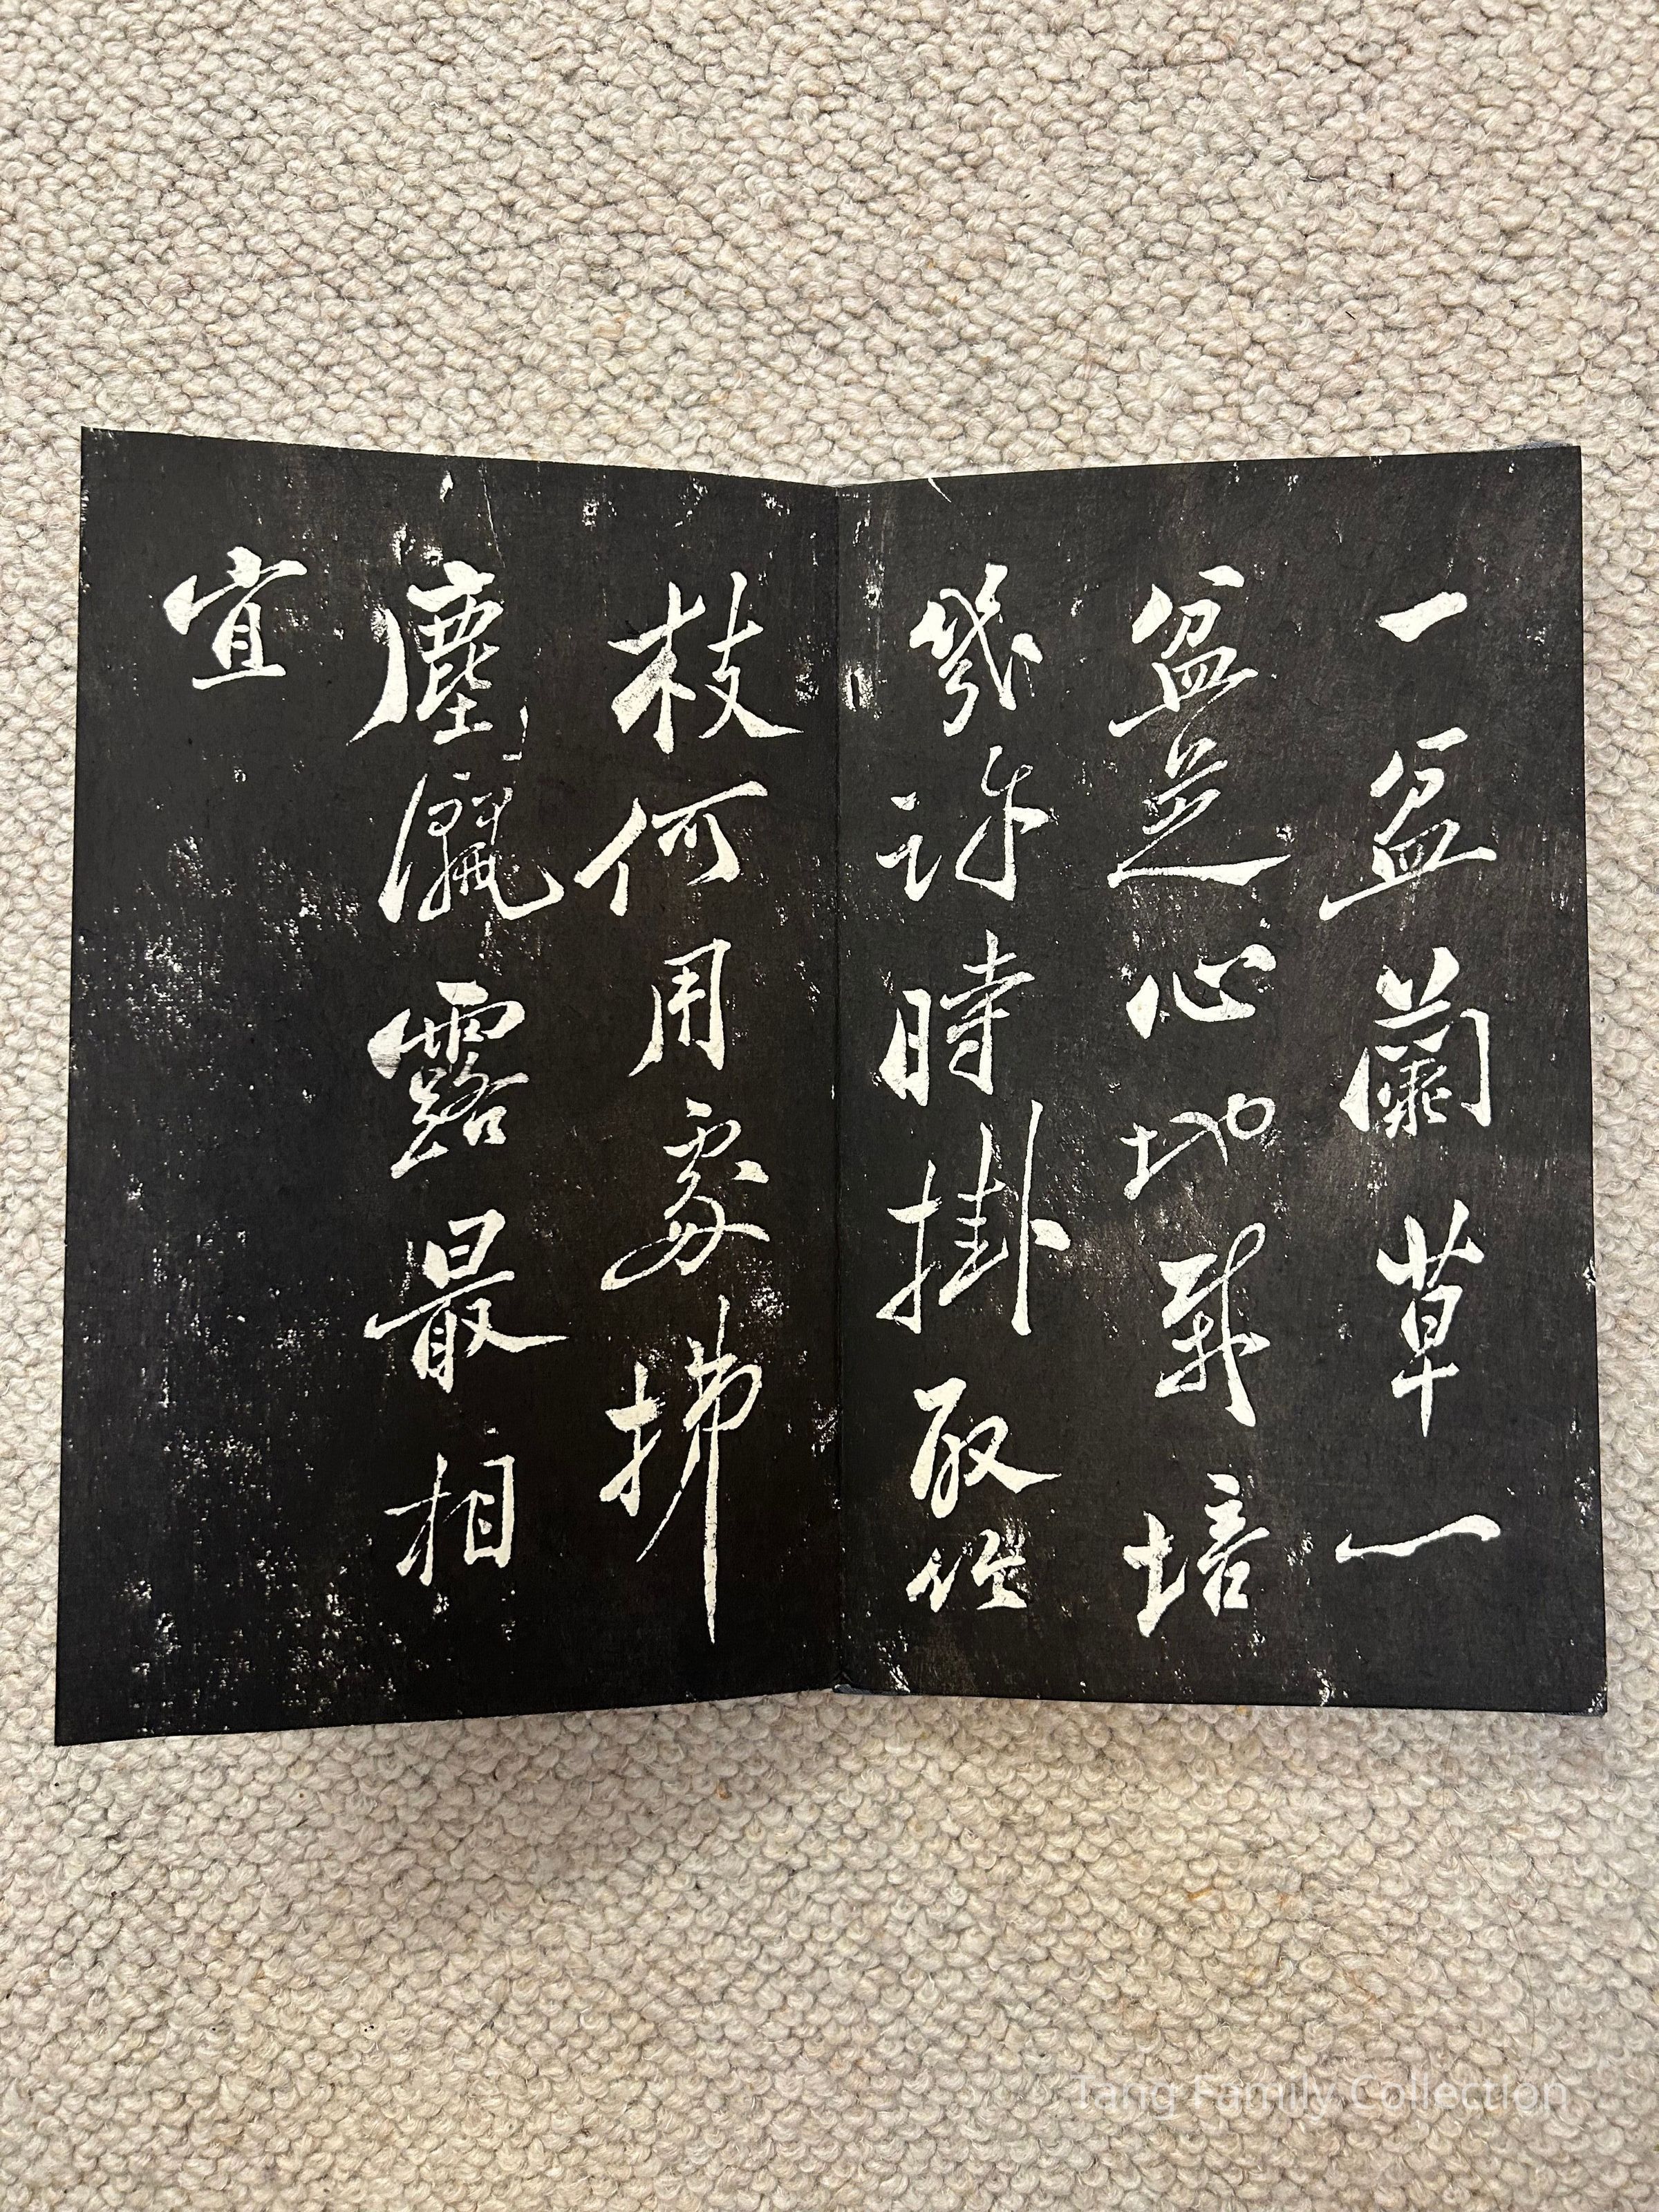 一盆蘭草一
盆芝心地栽培
幾許時掛取低
枝何用處拂
塵灑露最相
宜
Tang Family Collection